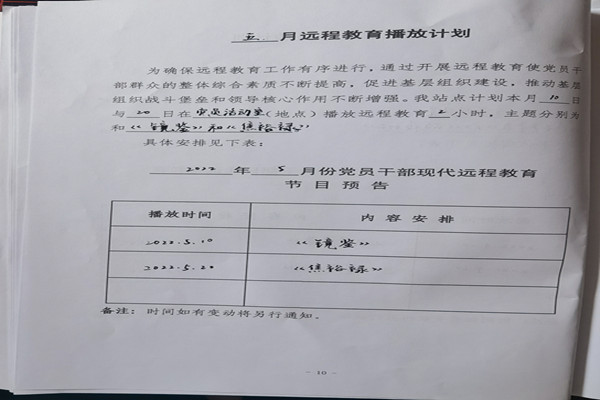 五 月远程教育播放计划
为确保远程教育工作有序进行，通过开展远程教育使党员干
部群众的整体综合素质不断提高，促进基层组织建设，推动基层
组织战斗堡垒和领导核心作用不断增强。我站点计划本月 10 日
与 20 日在党员活动室（地点）播放远程教育 2 小时，主题分别为
和《镜鉴》和《焦裕禄》
具体安排见下表：
2022 年 5 月份党员干部现代远程教育
节目预告
播放时间 内容安排
2022.5.10 《镜鉴》
2022.5.20 《焦裕禄》
备注：时间如有变动将另行通知。
- 10 -